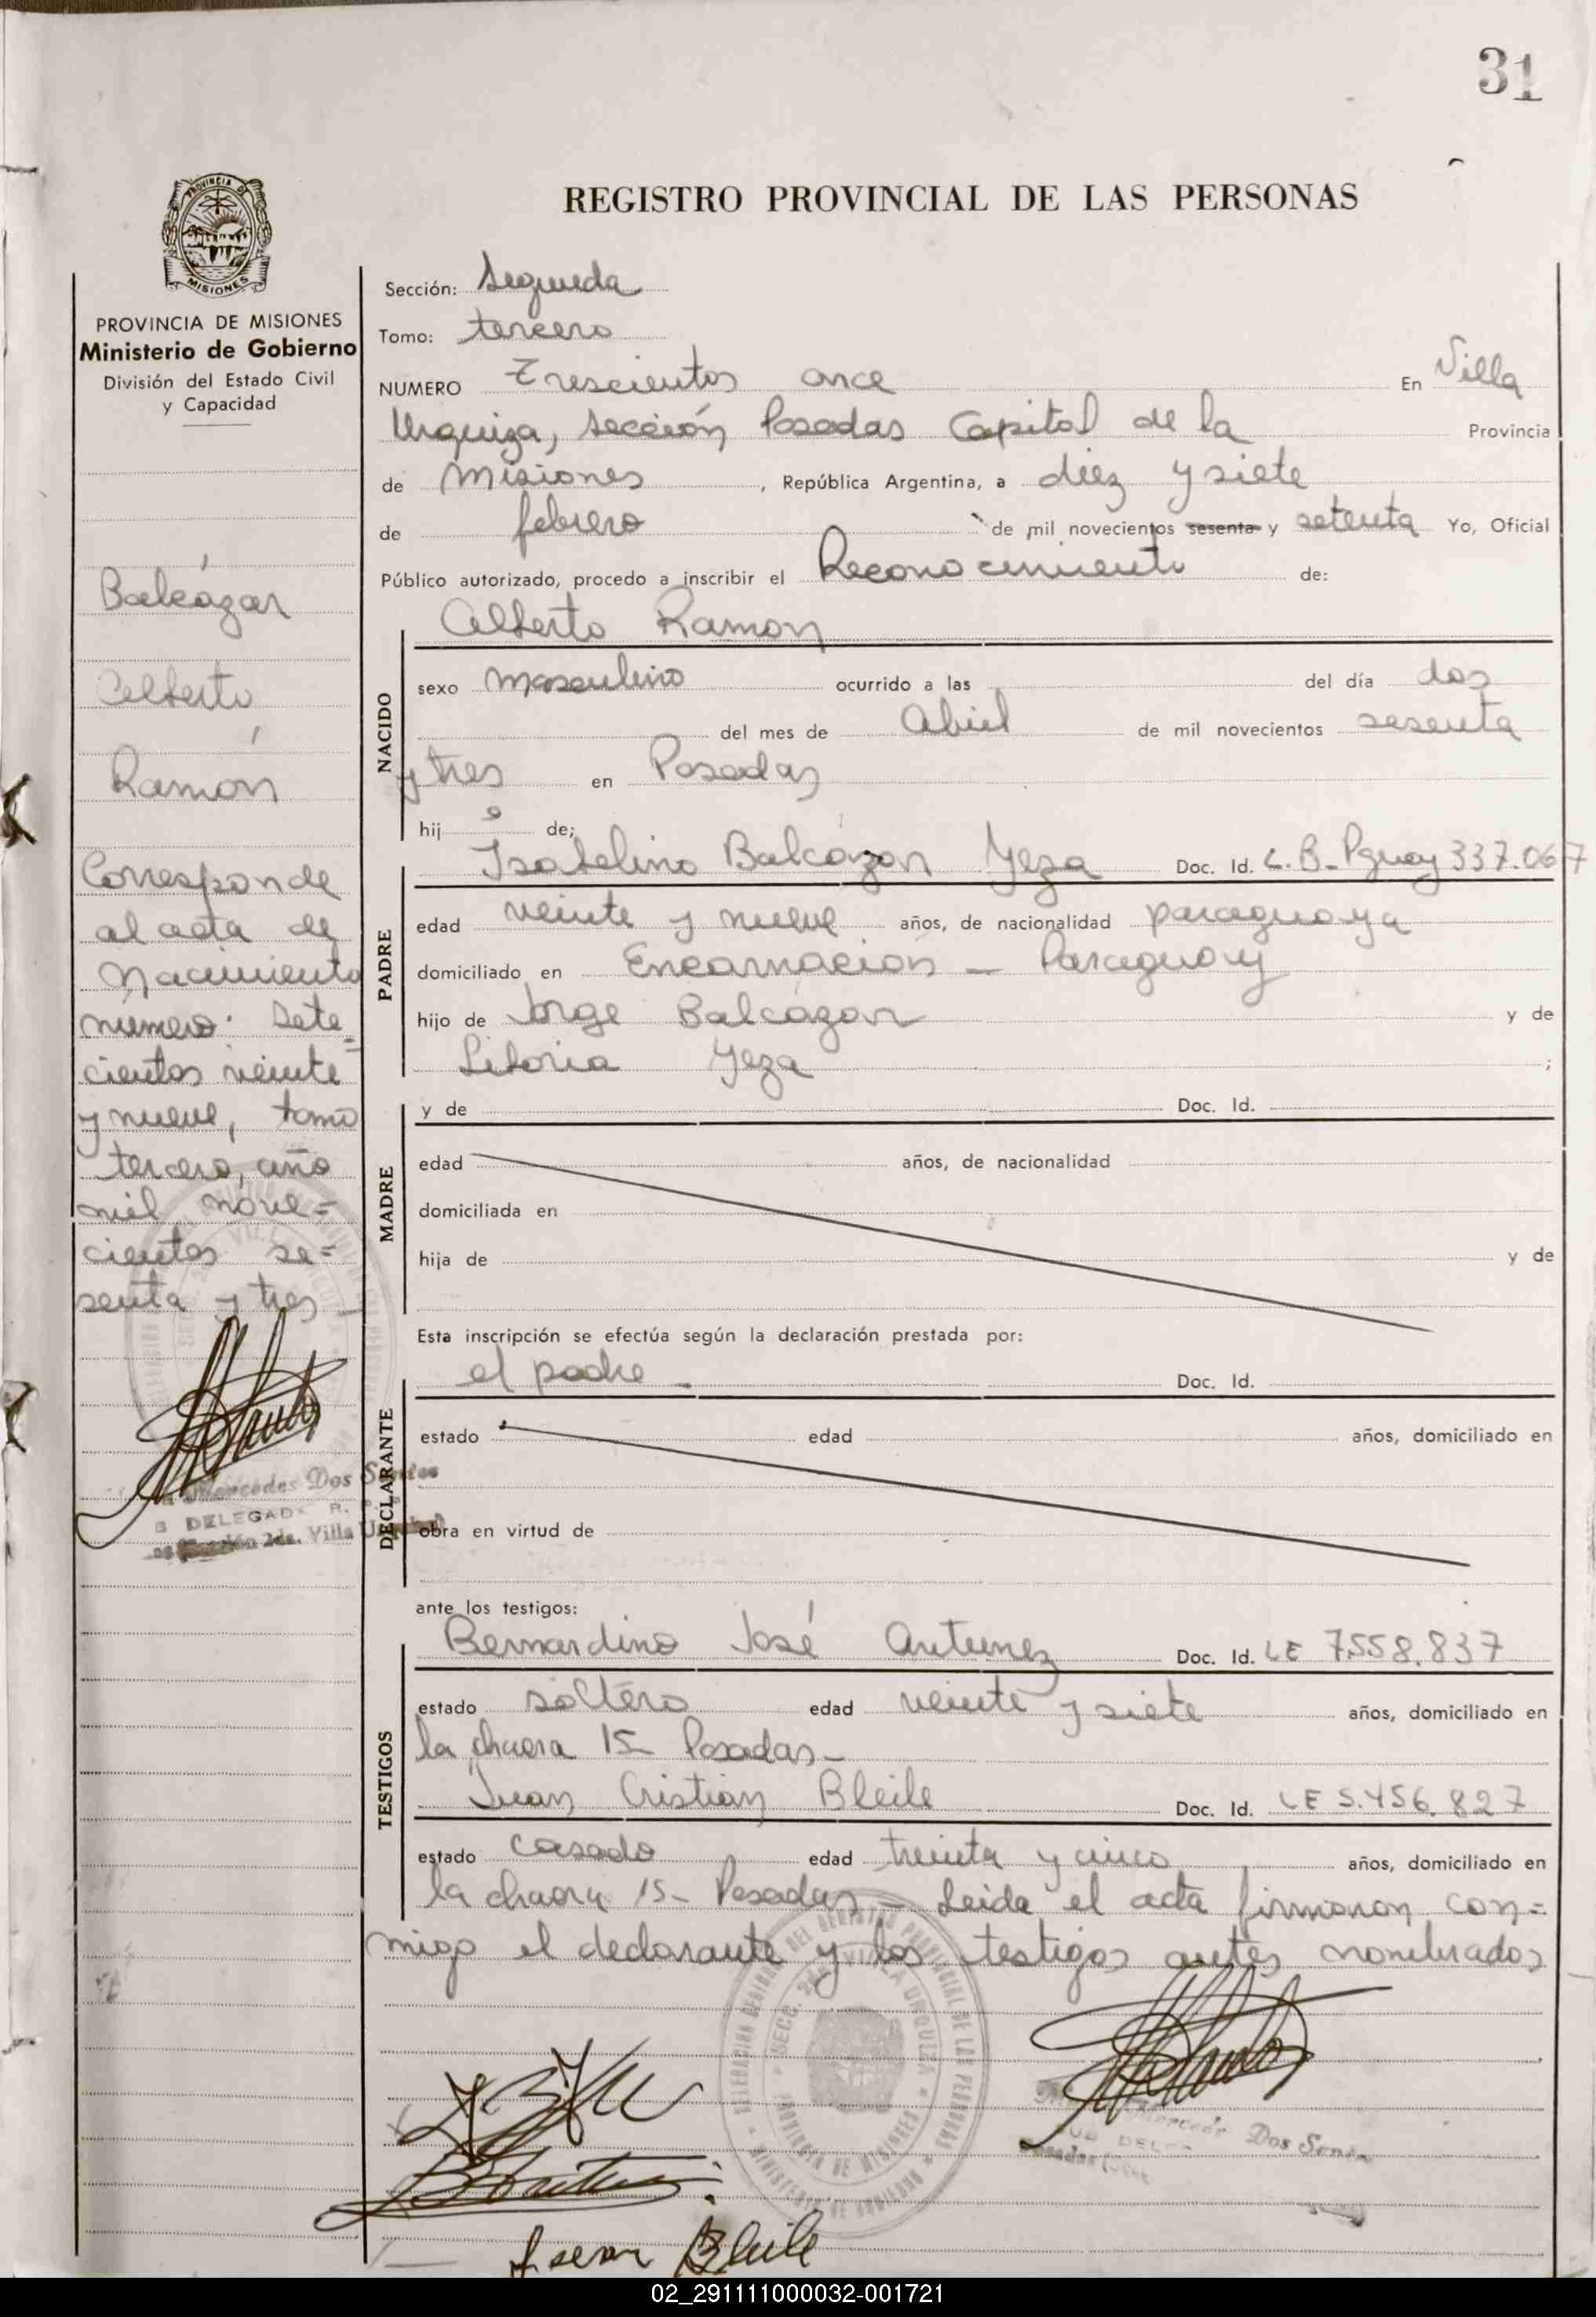 31
REGISTRO PROVINCIAL DE LAS PERSONAS
PROVINCIA DE MISIONES
PROVINCIA DE MISIONES
Ministerio de Gobierno
División del Estado Civil
y Capacidad
Balcázar
Alberto
Ramón
Corresponde
al acta de
Nacimiento
número: Sete=
cientos veinte
y nueve, tomo
tercero, año
mil nove=
cientos se=
senta y tres
Mercedes Dos Santos
DELEGAD
2da. Villa
Sección: Segunda
Tomo: tercero
NUMERO Trescientos once En Villa
Urquiza, sección Posadas Capital de la Provincia
de Misiones, República Argentina, a diez y siete
de febrero de mil novecientos sesenta y setenta Yo, Oficial
Público autorizado, procedo a inscribir el Reconocimiento de:
Alberto Ramon
NACIDO
sexo masculino ocurrido a las del día dos
del mes de Abril de mil novecientos sesenta
y tres en Posadas
hijo de;
Isabelino Balcázar Yeza Doc. Id. C.B-Pguay 337.067
PADRE
edad veinte y nueve años, de nacionalidad paraguaya
domiciliado en Encarnación - Paraguay
hijo de Jorge Balcázar y de
Litoria Yeza ;
MADRE
y de Doc. Id.
edad años, de nacionalidad
domiciliada en
hija de y de
Esta inscripción se efectúa según la declaración prestada por:
el padre - Doc. Id.
DECLARANTE
estado edad años, domiciliado en
obra en virtud de
ante los testigos:
Bernardino José Antunez Doc. Id. LE 7.558.837
TESTIGOS
estado soltero edad veinte y siete años, domiciliado en
la chacra 15- Posadas-
Juan Cristian Bleile Doc. Id. LE 5.456.827
estado casado edad treinta y cinco años, domiciliado en
la chacra 15- Posadas- Leida el acta firmaron con=
migo el declarante y los testigos antes nombrados
DELEGACION DEL REGISTRO PROVINCIAL DE LAS PERSONAS
SECC. 2da VILLA URQUIZA
PROVINCIA DE MISIONES
MINISTERIO DE GOBIERNO
Dos Santos
Juan Bleile
02_291111000032-001721